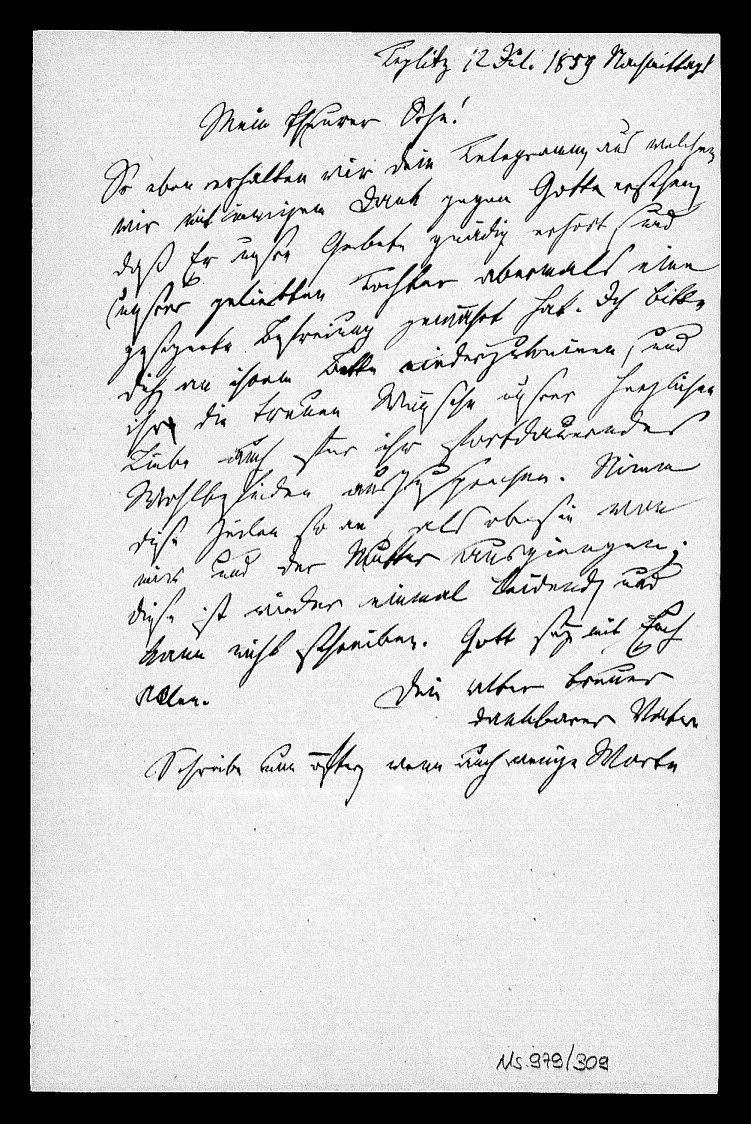 Teplitz 12 Juli 1859 Nachmittags
Mein theurer Sohn!
So eben erhalten wir dein Telegramm, aus welchem
wir mit innigem Dank gegen Gott ersehen,
daß Er unsre Gebete gnädig erhört, und
unsrer geliebten Tochter abermals eine
gesegnete Befreiung gewährt hat. Ich bitte
dich an ihrem Bette niederzuknieen, und
ihr die treuen Wünsche unsrer herzlichen
Liebe auch für ihr fortdauerndes
Wohlbefinden auszusprechen. Nimm
diese Zeilen so an, als ob sie von
mir und der Mutter ausgiengen;
diese ist wieder einmal leidend, und
kann nicht schreiben. Gott sey mit Euch
Allen.
Dein alter treuer
dankbarer Vater
Schreibe nun öfter, wenn auch wenige Worte
Ms. 979/309